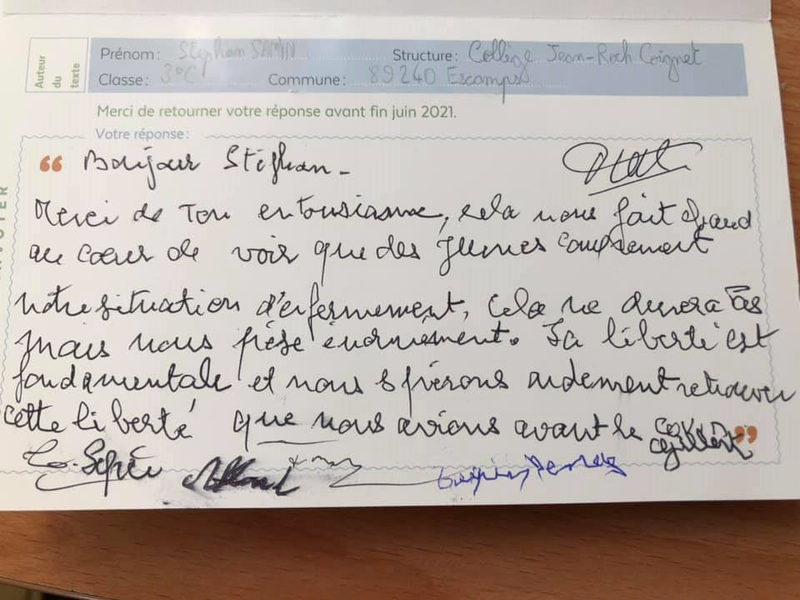 Auteur du texte
Prénom : Stephan SAMIN Structure : Collège Jean-Roch Coignet
Classe : 3°C Commune : 89240 Escamps
Merci de retourner votre réponse avant fin juin 2021.
Votre réponse :
“ Bonjour Stéphan -
Merci de Ton entousiasme, cela nous fait chaud
au cœur de voir que des Jeunes comprennent
notre situation d'enfermement, cela ne durera pas
mais nous pèse énormément. La liberté est
fondamentale et nous espérons ardemment retrouver
cette liberté que nous avions avant le COVID ”